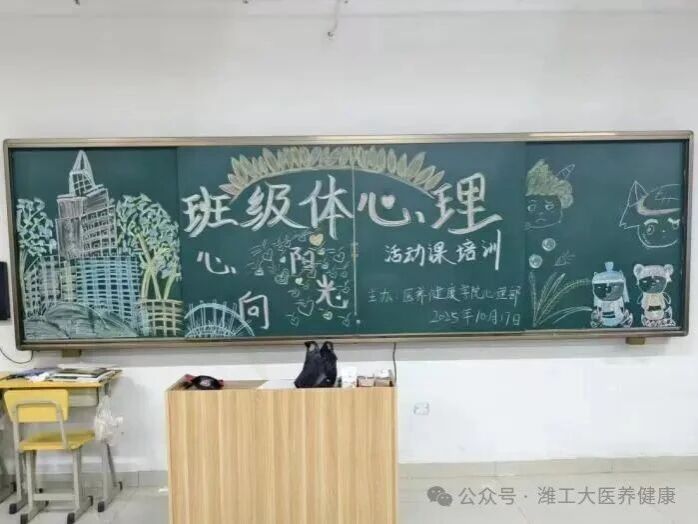 班级体心理
活动课培训
心向
阳光
主办:医养健康学院心理部
2025年10月17日
公众号·潍工大医养健康